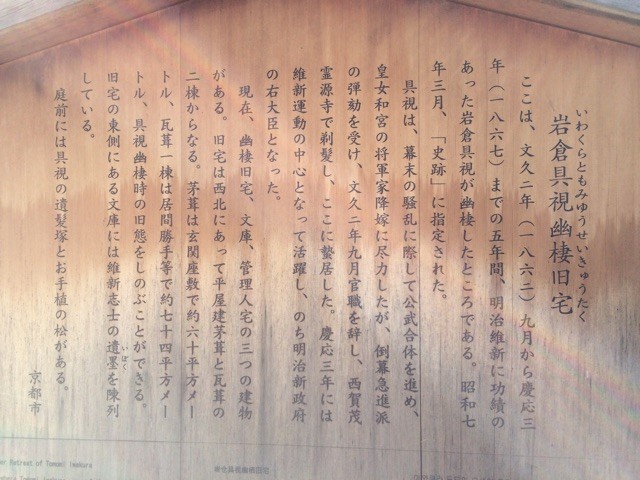 いわくらともみゆうせいきゅうたく
岩倉具視幽棲旧宅
ここは、文久二年（一八六二）九月から慶応三
年（一八六七）までの五年間、明治維新に功績の
あった岩倉具視が幽棲したところである。昭和七
年三月、「史跡」に指定された。
具視は、幕末の騒乱に際して公武合体を進め、
皇女和宮の将軍家降嫁に尽力したが、倒幕急進派
の弾劾を受け、文久二年九月官職を辞し、西賀茂
霊源寺で剃髪し、ここに蟄居した。慶応三年には
維新運動の中心となって活躍し、のち明治新政府
の右大臣となった。
現在、幽棲旧宅、文庫、管理人宅の三つの建物
がある。旧宅は西北にあって平屋建茅葺と瓦葺の
二棟からなる。茅葺は玄関座敷で約六十平方メー
トル、瓦葺一棟は居間勝手等で約七十四平方メー
トル、具視幽棲時の旧態をしのぶことができる。
旧宅の東側にある文庫には維新志士の遺墨を陳列
いぼく
している。
庭前には具視の遺髪塚とお手植の松がある。
京都市
Retreat of Tomomi Iwakura
岩倉具視幽棲旧宅